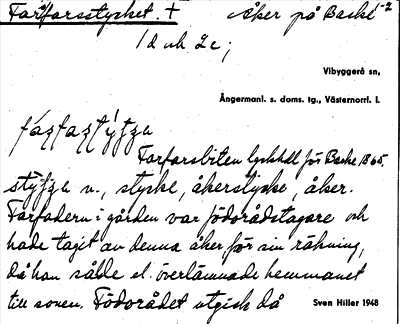 Farfarsstycket. + Åker på Backe 1-2
1 a uh 2c;
Vibyggerå sn,
Ångermanl. s. doms. tg., Västernorrl. l.
Farfarsbiten för Backe 1865,
n., stycke, åkerstycke, åker.
Farfadern i gården var födorådstagare och
hade tagit av denna åker för sin räkning,
då han sålde el. överlämnade hemmanet
till sonen. Födorådet utgick då Sven Hiller 1948